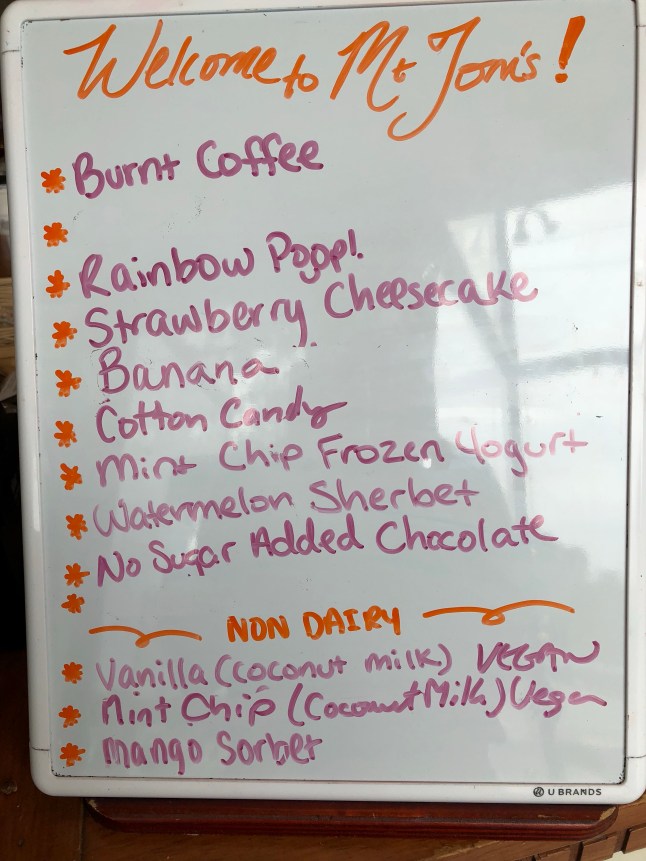 Welcome to Mt Tom's!
* Burnt Coffee
*
* Rainbow Poop!
* Strawberry Cheesecake
* Banana
* Cotton Candy
* Mint Chip Frozen Yogurt
* Watermelon Sherbet
* No Sugar Added Chocolate
*
NON DAIRY
* Vanilla (coconut milk) VEGAN
* Mint Chip (Coconut Milk) Vegan
* Mango Sorbet
U BRANDS